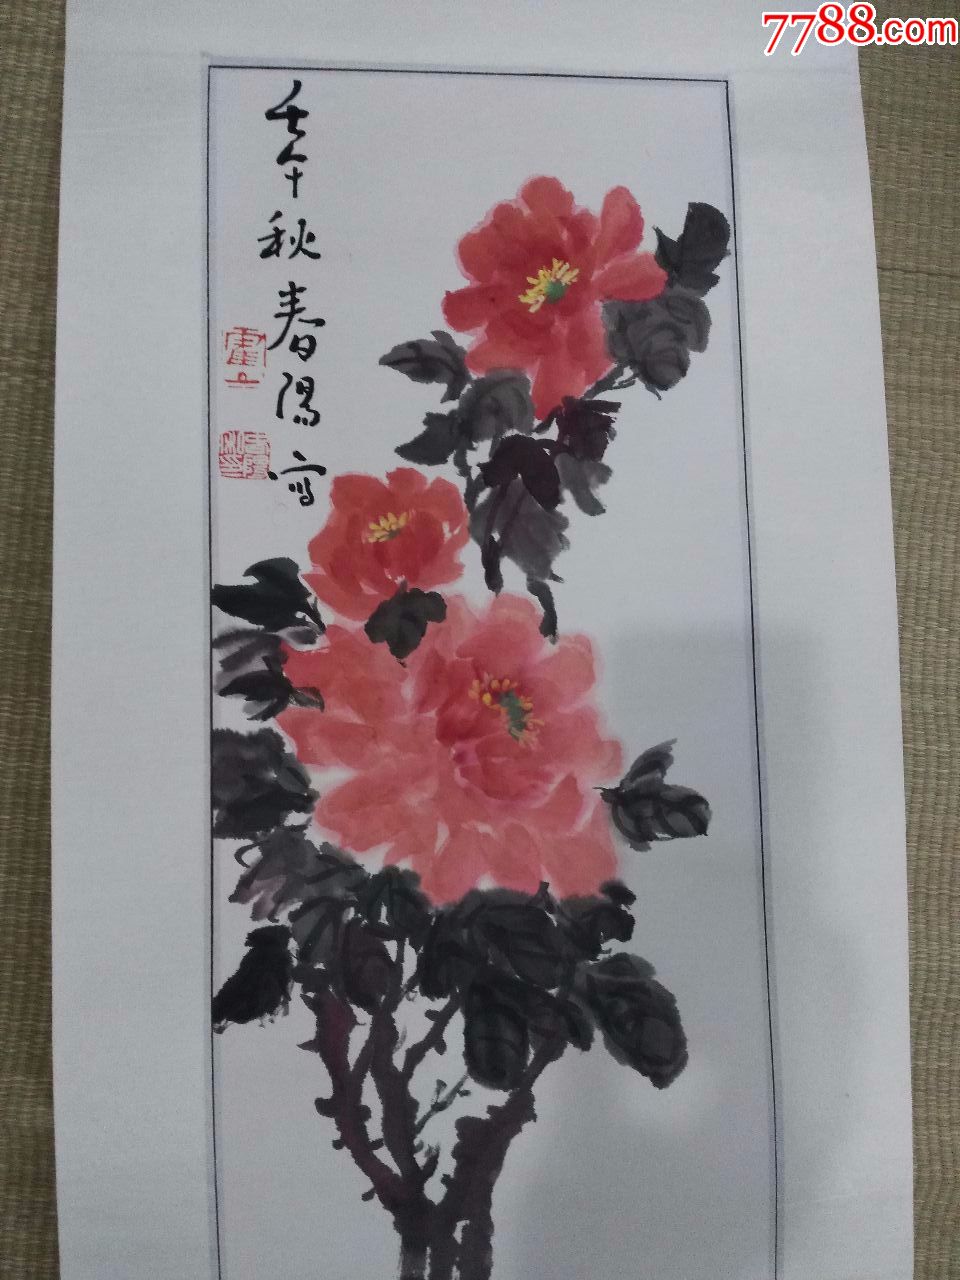 7788.com
壬午秋春陽写